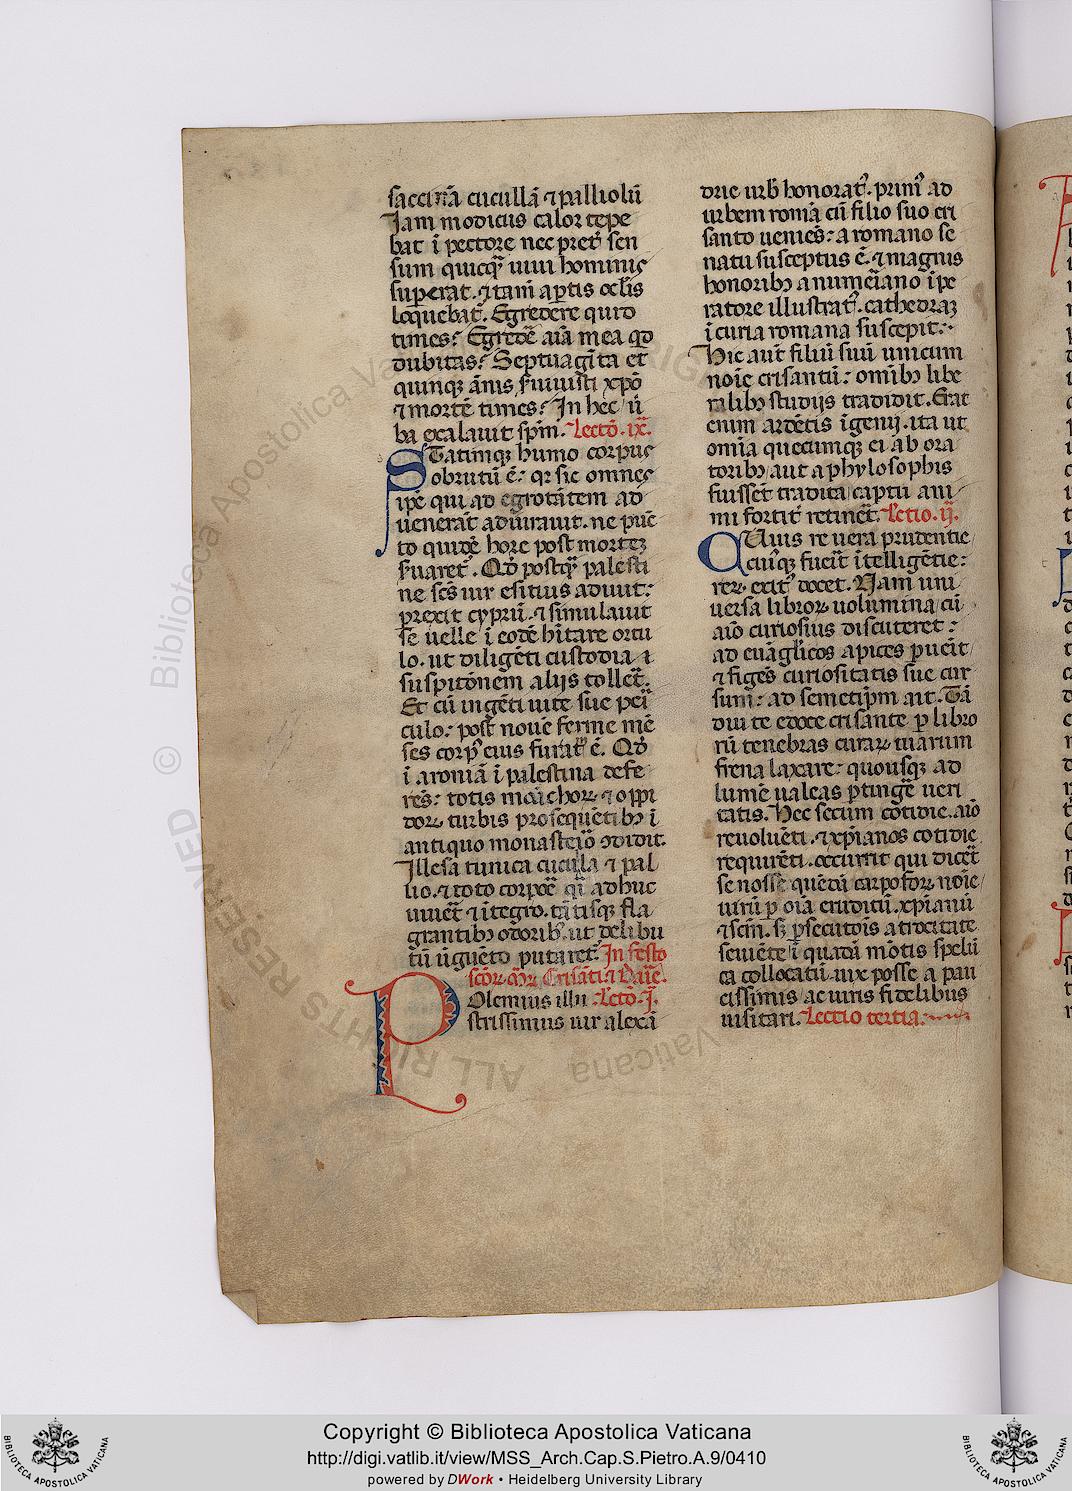 saccinā cucullā ⁊ palliolū
Iam modicus calor tepe
bat ī pectore nec pret̉ sen
sum quicq̄ uiui hominis
suꝑerat. ⁊ tam̄ aꝑtis ocl̉is
loquebat̉. Egredere quid
times? Egredē aīa mea qd̄
dubitas? Septuagīta et
quinq; ānis s̉uiuisti xp̄o
⁊ mortē times? In hec ū̉
ba exalauit sp̄m. Lectō. ix.
Statimq; humo corpus
obrutū ē: qr sic omnes
ip̄e qui ad egrotātem ad
uenerāt adiurauit. ne pūc̄
to quidē hore post mortez
s̉uaret̉. Qd̄ postq̄ palesti
ne sc̄s uir esitius adiuit:
ꝑrexit cyprū. ⁊ simulauit
se uelle ī eodē hītare ortu
lo. ut diligēti custodia ⁊
suspitōnem alijs tollet̉.
Et cū ingēti uite sue peī
culo: post noue ferme mē
ses corp̉ eius furat̉ ē. Qd̄
ī aroniā ī palestina defe
rēs: totis mōichoꝝ ⁊ oppi
doꝝ turbis prosequētibꝫ ī
antiquo monasteīo ꝯdidit.
Illesa tunica cuculla ⁊ pal
lio. ⁊ toto corpoē q̄i adhuc
uiuēt ⁊ ītegro. tātisq; fla
grantibꝫ odoribꝫ. ut delibu
tū ūguēto putaret̉. In festo
sc̄oꝝ m̄r Crisāti ⁊ Daīe.
Polemius illu Lectō. I.
strissimus uir alexā
drie urb̉ honorat̉. prim̉ ad
urbem romā cū filio suo cri
santo ueniēs: a romano se
natu susceptus ē. ⁊ magnis
honoribꝫ a numeīano īpe
ratore illustrat̉. cathedraz
ī curia romana suscepit:
Hic aut̄ filiū suū unicum
noīe crisantū: omībꝫ libe
ralibꝫ studijs tradidit. Erat
enim ardētis īgenij. ita ut
omīa quecumq; ei ab ora
toribꝫ aut a phylosophis
fuissēt tradita captu ani
mi fortit̉ retinēt. Lectio. ij.
Cuius re uera prudentie
cuīq; fueīt ītelligētie:
reꝝ exit̉ docet. Nam uni
uersa libroꝝ uolumina cū
aīo curiosius discuteret:
ad euāgl̉icos apices ꝑueīt
⁊ figēs curiositatis sue cur
sum: ad semetip̄m ait. Tā
diu te edoce crisante ꝑ libro
rū tenebras curaꝝ tuarum
frena laxare: quousq; ad
lumē ualeas ꝑtingē ueri
tatis. Hec secum cotidie aīo
reuoluēti. ⁊ xp̄ianos cotidie
requirēti. occurrit qui dicēt
se nosse quēdā carpoforꝝ noīe
uirū ꝑ oīa eruditū. xp̄ianū
⁊ sc̄m. s̉ ꝑsecutoīs atrocitate
seuiēte ī quadā mōtis spelū
ca collocatū. uix posse a pau
cissimis ac uiris fidelibus
uisitari. Lectio tertia.
Copyright © Biblioteca Apostolica Vaticana
http://digi.vatlib.it/view/MSS_Arch.Cap.S.Pietro.A.9/0410
powered by DWork • Heidelberg University Library
BIBLIOTECA APOSTOLICA VATICANA
BIBLIOTECA APOSTOLICA VATICANA
© Biblioteca Apostolica Vaticana
ALL RIGHTS RESERVED